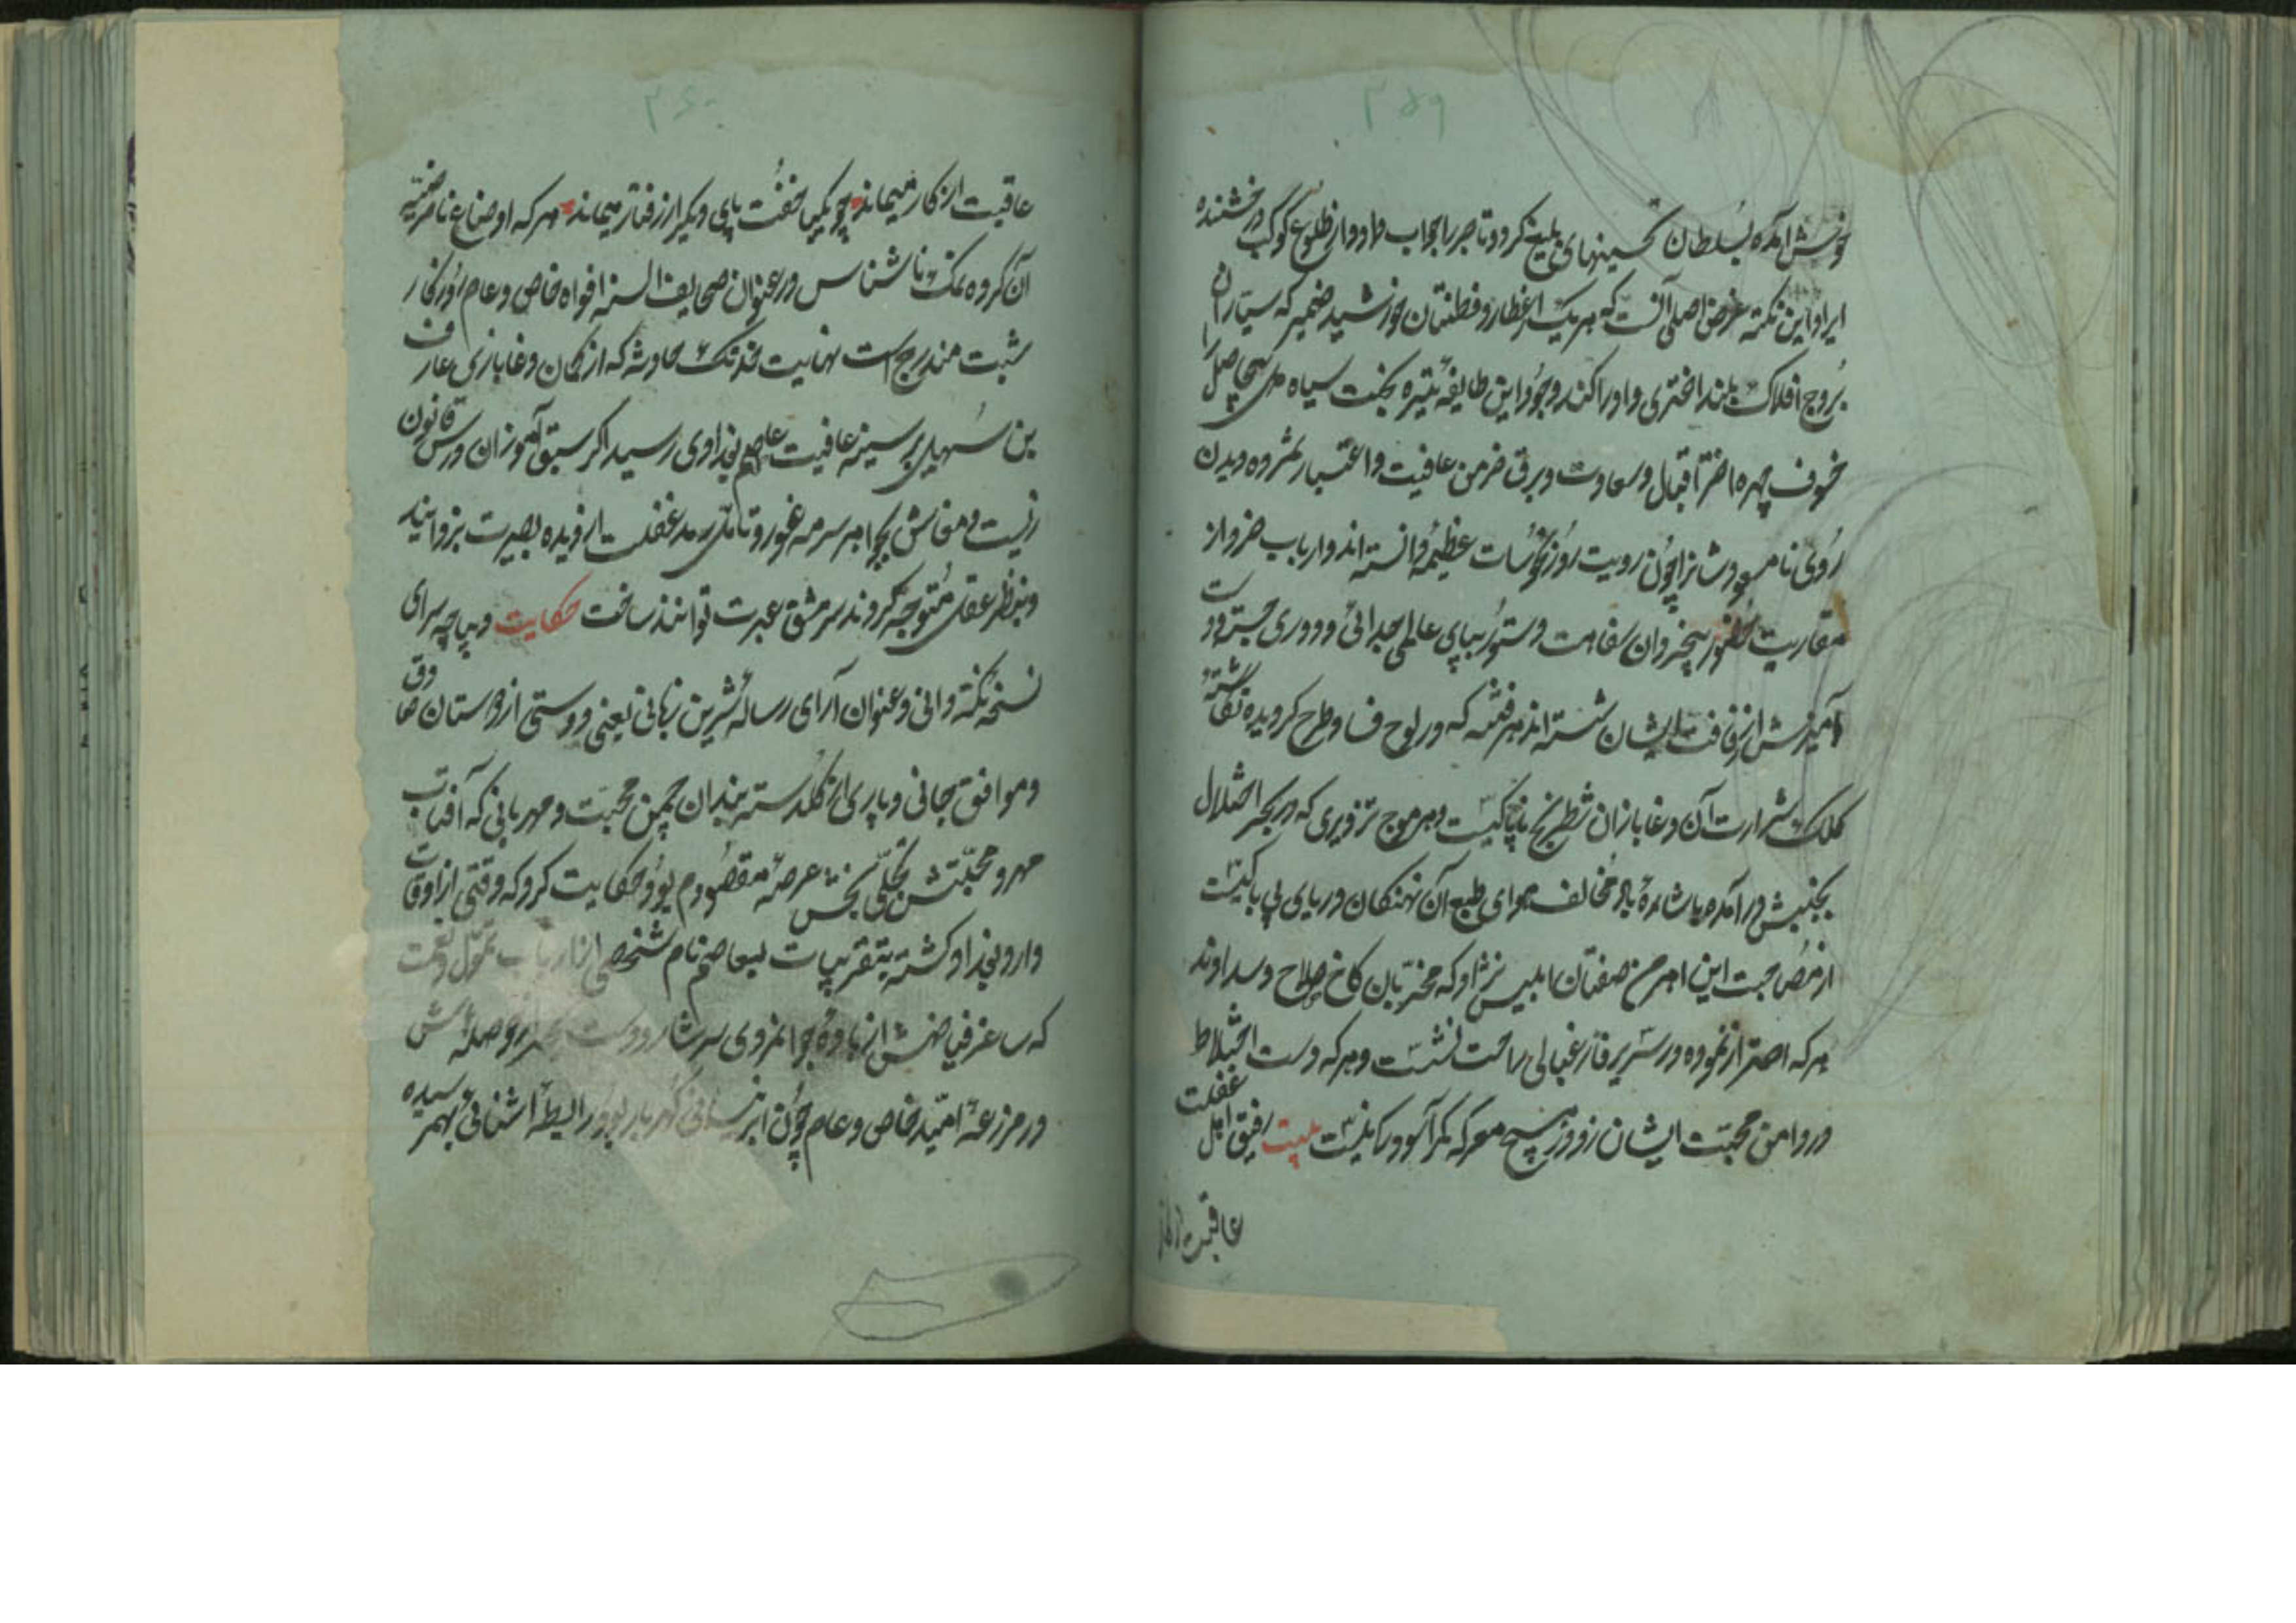 ۳۵۹
خوش آمده بسلطان تحسینهای بلیغ کرد و تاجر را جواب داد و از طلوع کوکب درخشنده
ایراد این نکته غرض اصلی آنست که هر یک از فطنتان خورشید ضمیر که سیاران
بروج افلاک بلند اختری و اوراکند وجود این طایفه تیره بخت سیاه دل بیحاصل را
خسوف چهره اختر اقبال و سعادت و برق خرمن عافیت و اعتبار شمرده دیدن
روی نامسعودشانرا چون رویت روز نحوسات عظیمه دانسته اند و ارباب خرد از
مقاربت بیخردان سفاهت دستور بپای عالمی جدائی و دوری جسته دست
آمیزش از رفاقت ایشان شسته اند هر فتنه که در لوح فساد طرح کردیده نقاشته
کلک شرارت آن دغابازان شطرنج ناپاکیست و هر موج تزویری که در بحر اختلال
بجنبش درآمده باشاره باد مخالف هوای طبع آن نهنگان دریای بی باکیست
از مصاحبت این اهرمن صفتان ابلیس نژاد که مخربان کاخ صلاح و سدادند
هر که احتراز نموده در سریر فارغبالی راحت نشست و هر که دست اختلاط
در دامن محبت ایشان زد در هیچ معرکه کمرآسودگی نبست بیت رفیق اهل غفلت
عاقبت از کار
۳۶۰
عاقبت از کار میماند چو یکپا خفت پای دیگر از رفتار میماند هر که اوضاع نامرضیه
آن گروه نمک ناشناس در عنوان صحایف السنه افواه خاص و عام روزگار
ثبت مندرج است نهایت خدنک حادثه که از کمان دغابازی عارف
بن سهیل بر سینه عافیت عاصم بغدادی رسید اگر سبق آموزان درس قانون
زیست و معاش بجواهر سرمه غور و تامل رمد غفلت از دیده بصیرت بزدایند
و بنظر عقل متوجه گردند سرمشق عبرت توانند ساخت حکایت دیباچه سرای
نسخه نکته دانی و عنوان آرای رساله شیرین زبانی یعنی دوستی از دوستان صادق
و موافق جانی و یاری از گلدسته بندان چمن محبت و مهربانی که آفتاب
مهر و محبتش تجلی بخش عرصه مقصودم بود حکایت کرد که وقتی از اوقات
وارد بغداد گشته بتقریبات بعاصم نام شخصی از ارباب تمول و نعمت
که ساغر فیاضش از باده جوانمردی سرشار و دست حوصله اش
در مزرعه امید خاص و عام چون ابر نیسانی گهربار بود رابطه آشنائی بهم رسیده